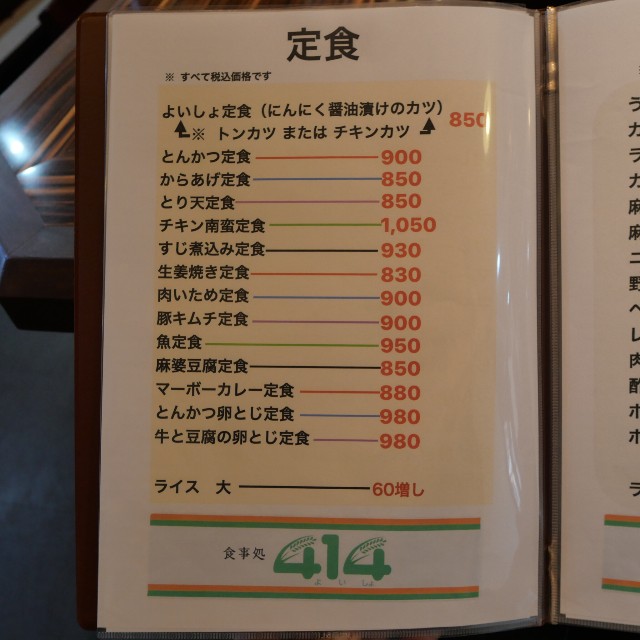 定食
※ すべて税込価格です
よいしょ定食（にんにく醤油漬けのカツ） 850
※ トンカツ または チキンカツ
とんかつ定食 900
からあげ定食 850
とり天定食 850
チキン南蛮定食 1,050
すじ煮込み定食 930
生姜焼き定食 830
肉いため定食 900
豚キムチ定食 900
魚定食 950
麻婆豆腐定食 850
マーボーカレー定食 880
とんかつ卵とじ定食 980
牛と豆腐の卵とじ定食 980
ライス 大 60増し
食事処 414
よ い しょ
ラ
カ
ラ
カ
麻
麻
ニ
野
ヘ
レ
肉
酢
ホ
ホ
ラ